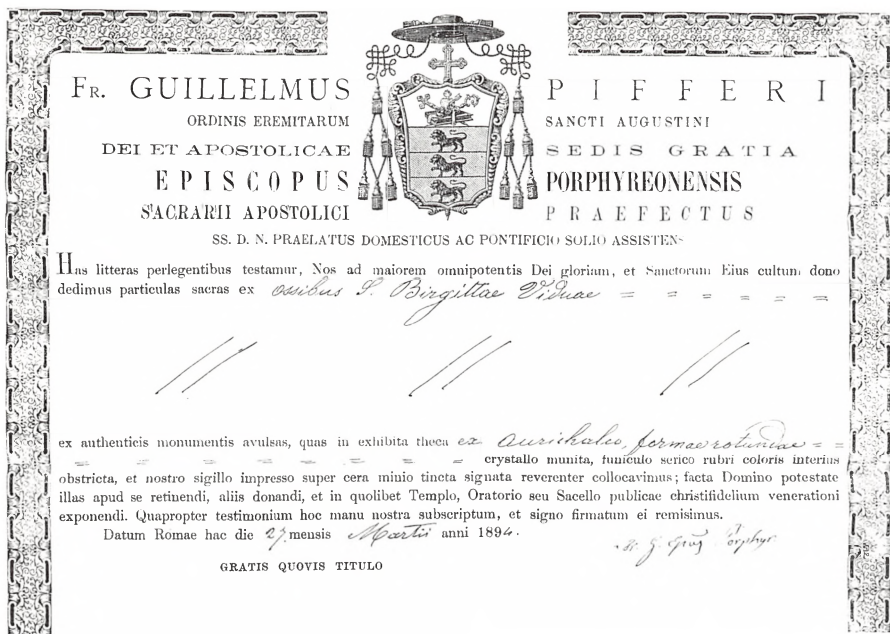 FR. GUILLELMUS PIFFERI
ORDINIS EREMITARUM SANCTI AUGUSTINI
DEI ET APOSTOLICAE SEDIS GRATIA
EPISCOPUS PORPHYREONENSIS
SACRARII APOSTOLICI PRAEFECTUS
SS. D. N. PRAELATUS DOMESTICUS AC PONTIFICIO SOLIO ASSISTENS
Has litteras perlegentibus testamur, Nos ad maiorem omnipotentis Dei gloriam, et Sanctorum Eius cultum dono
dedimus particulas sacras ex ossibus S. Birgittae Viduae = = = = = =
ex authenticis monumentis avulsas, quas in exhibita theca ex aurichalco, formae rotundae = =
= = = = = = = = crystallo munita, funiculo serico rubri coloris interius
obstricta, et nostro sigillo impresso super cera minio tincta signata reverenter collocavimus; facta Domino potestate
illas apud se retinendi, aliis donandi, et in quolibet Templo, Oratorio seu Sacello publicae christifidelium venerationi
exponendi. Quapropter testimonium hoc manu nostra subscriptum, et signo firmatum ei remisimus.
Datum Romae hac die 27 mensis Martii anni 1894.
Porphyr
GRATIS QUOVIS TITULO